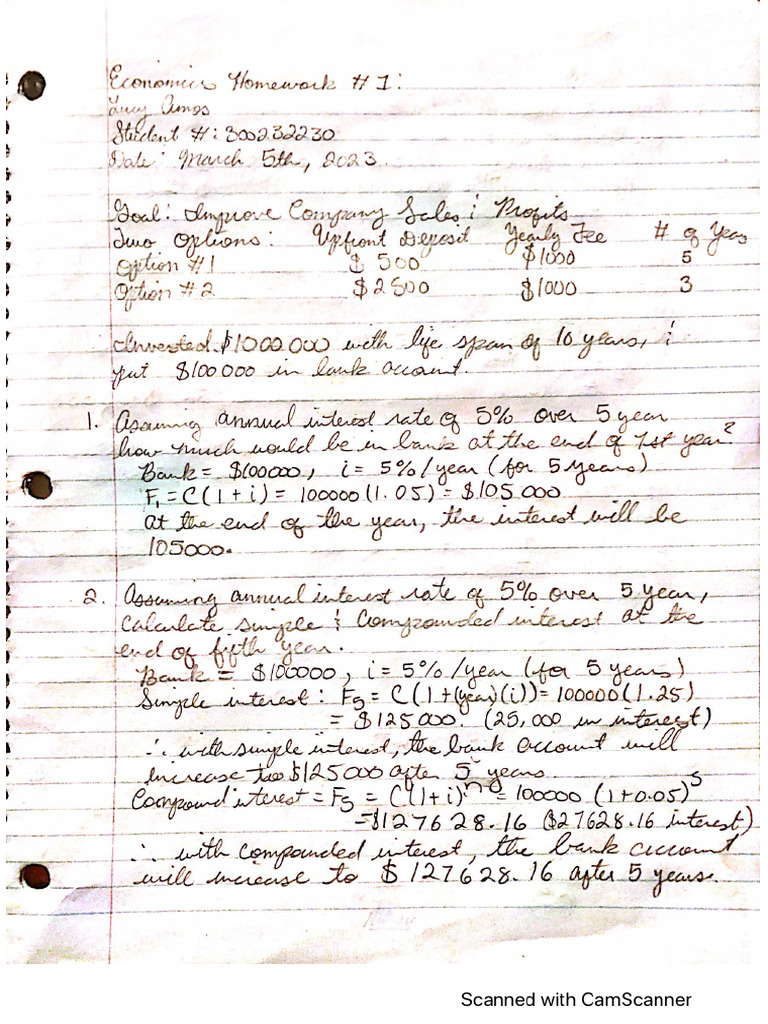 Economics Homework #1:
Lucy Amos
Student #: 300232230
Date: March 5th, 2023
Goal: Improve Company Sales & Profits
Two Options: Upfront Deposit Yearly Fee # of Years
Option #1 $500 $1000 5
Option #2 $2500 $1000 3
Invested $1000000 with life span of 10 years, &
put $100000 in bank account.
1. Assuming annual interest rate of 5% over 5 year
how much would be in bank at the end of 1st year?
Bank = $100000, i = 5%/year (for 5 years)
F₁ = C(1+i) = 100000(1.05) = $105000
at the end of the year, the interest will be
105000.
2. Assuming annual interest rate of 5% over 5 year,
calculate simple & compounded interest at the
end of fifth year.
Bank = $100000, i = 5%/year (for 5 years)
Simple interest: F₅ = C(1+(year)(i)) = 100000(1.25)
= $125000. (25,000 in interest)
∴ with simple interest, the bank account will
increase to $125000 after 5 years.
Compound interest = F₅ = C(1+i)ⁿ = 100000 (1+0.05)⁵
= $127628.16 ($27628.16 interest)
∴ with compounded interest, the bank account
will increase to $127628.16 after 5 years.
Scanned with CamScanner